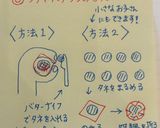 小さなお子さん
にもできます!
<方法1>
<方法2>
バターナイフ
でタネを入れる
タネをまるめる